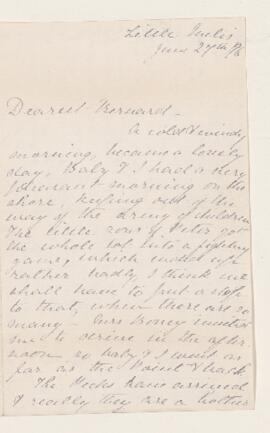 Little Metis
June 27th
Dearest Bernard -
A cold & windy
morning, became a lovely
day, Baby & I had a very
pleasant morning on the
shore, keeping out of the
way of the army of children
The little rows of Peter got
the whole lot into a fighting
game, which makes up
rather badly, I think we
shall have to put a stop
to that, when there are so
many - Mrs Money invited
me to drive in the after-
noon, so Baby & I went as
far as the Point & back
The Pecks have arrived
& really they are a bother